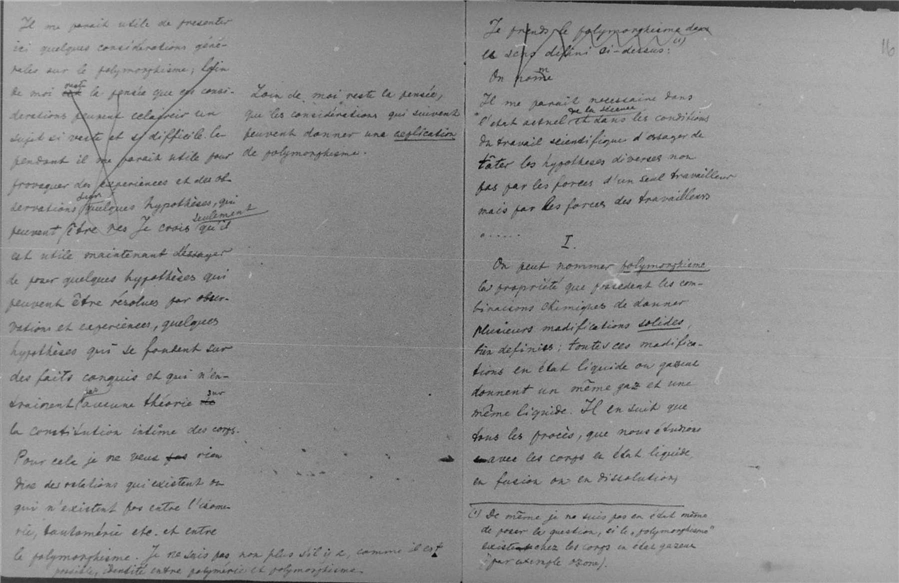 Il me parait utile de presenter
ici quelques considérations géné-
rales sur le polymorphisme; loin
de moi reste la pensée que ces consi-
derations peuvent eclaircir un
sujet si vaste et si difficile. Ce-
pendant il me parait utile pour
provoquer des experiences et des ob-
servations sur quelques hypothèses, qui
peuvent être res Je crois seulement qu'il
est utile maintenant d'essayer
de poser quelques hypothèses qui
peuvent être résolues par obser-
vations et experiences, quelques
hypothèses qui se fondent sur
des faits conquis et qui n'en-
trainent aucune théorie sur
la constitution intime des corps.
Pour cela je ne veux pas rien
dire des relations qui existent ou
qui n'existent pas entre l'isome-
rie, tautomérie etc. et entre
le polymorphisme. Je ne sais pas non plus s'il y a, comme il est
possible, identité entre polymérie et polymorphisme.
Loin de moi reste la pensée,
que les considérations qui suivent
peuvent donner une explication
de polymorphisme.
116
Je prends le polymorphisme dans
le sens défini ci-dessus: (1)
On nomme
Il me parait necessaire dans
l'etat actuel de la science et dans les conditions
du travail scientifique d'essayer de
tâter les hypothèses diverses non
pas par les forces d'un seul travailleur
mais par les forces des travailleurs
......
I.
On peut nommer polymorphisme
la propriété que possedent les com-
binaisons chimiques de donner
plusieurs modifications solides,
bien definies; toutes ces modifica-
tions en état liquide ou gazeux
donnent un même gaz et une
même liquide. Il en suit que
tous les procès, que nous étudions
avec les corps en état liquide,
en fusion ou en dissolution,
(1) De même je ne suis pas en état même
de poser la question, si le "polymorphisme"
existe chez les corps en état gazeux
(par exemple ozone).